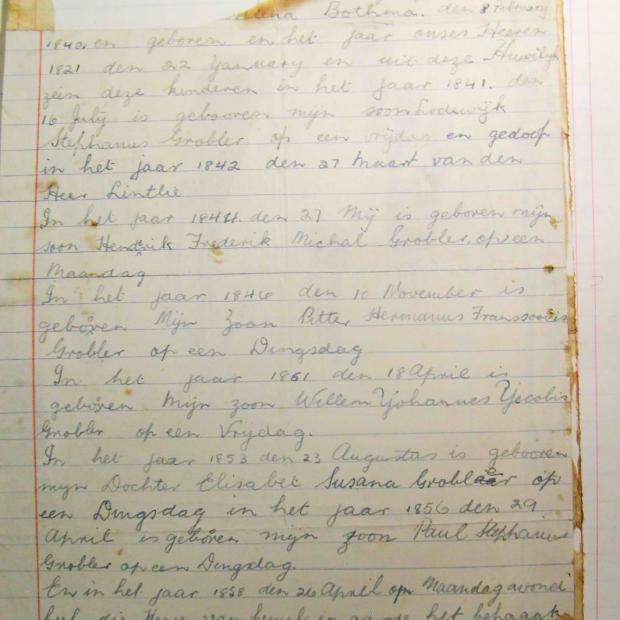 Bothma. den 8 February
1840. en geboren en het jaar onses Heeren
1821 den 22 Yanuary en uit deze Huwilyk
zein deze kinderen in het jaar 1841. den
16 July is gebooren mijn soon Lodewijk
Stephanus Grobler op een vrijdag en gedoop
in het jaar 1842 den 27 Maart van den
Heer Linthie
In het jaar 1844. den 27 Mij is geboren mijn
soon Hendrik Frederik Michal Grobler. op een
Maandag
In het jaar 1846 den 10 November is
geboren Mijn Zoon Pitter Hermanus Franssoois
Grobler op een Dingsdag
In het jaar 1851 den 18 April is
geboren Mijn zoon Willem Yohannes Yecobis
Grobler op een Vrijdag.
In het jaar 1853 den 23 Augustas is gebooren
myn Dochter Elisabet Susana Grobler op
een Dingsdag in het jaar 1856 den 29
April is geboren mijn zoon Paul Stephanus
Grobler op een Dingsdag.
En in het jaar 1858 den 26 April op Maandag avond
die Heere het behaagt